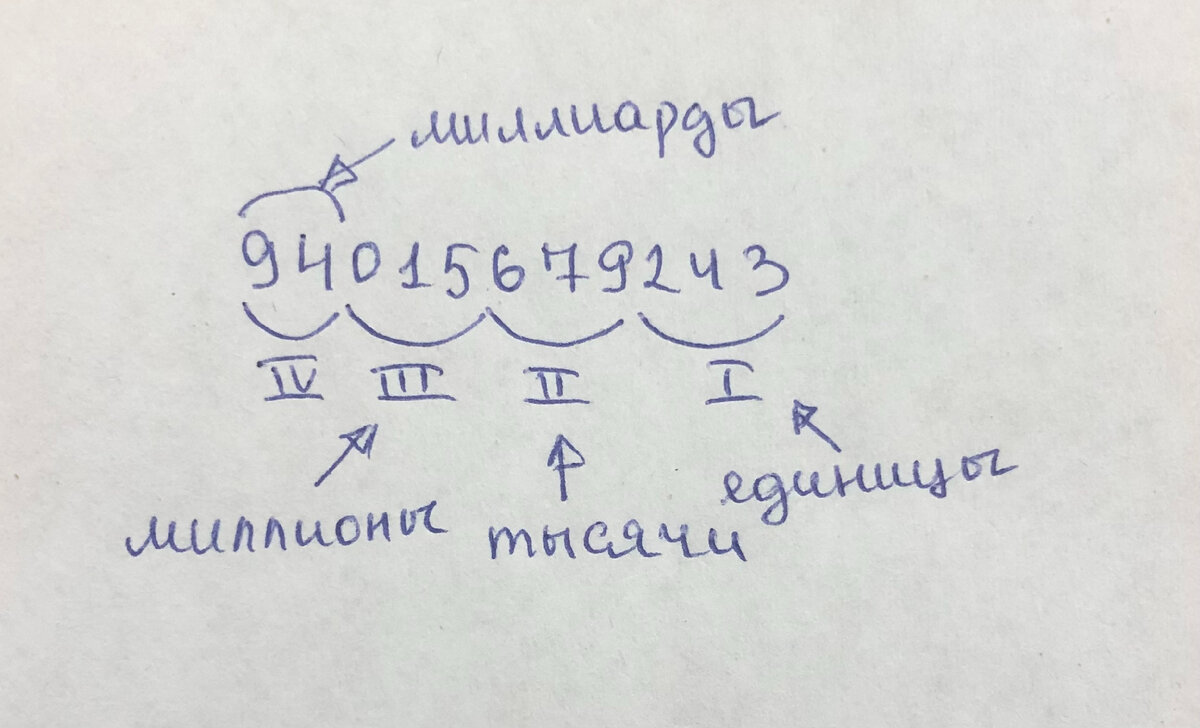 миллиарды
94015679243
IV III II I
миллионы тысячи единицы